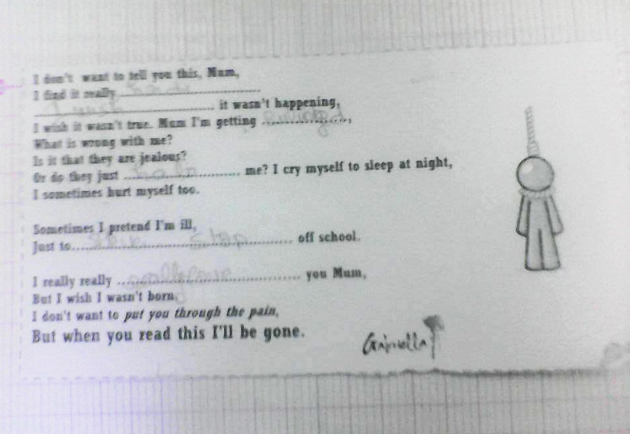 I don't want to tell you this, Mum,
I find it really ..............................
.............................. it wasn't happening,
I wish it wasn't true. Mum I'm getting ..................,
What is wrong with me?
Is it that they are jealous?
Or do they just ........................ me? I cry myself to sleep at night,
I sometimes hurt myself too.
Sometimes I pretend I'm ill,
Just to.............................................. off school.
I really really ...................................... you Mum,
But I wish I wasn't born,
I don't want to put you through the pain,
But when you read this I'll be gone.